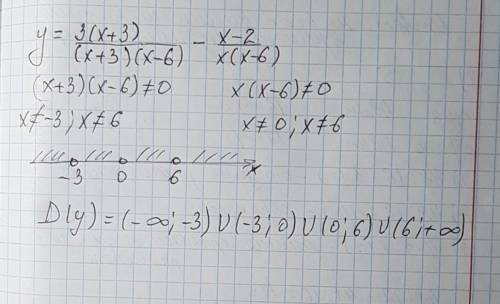 y = 3(x+3)/((x+3)(x-6)) - (x-2)/(x(x-6))
(x+3)(x-6)≠0 x(x-6)≠0
x≠-3; x≠6 x≠0; x≠6
-3 0 6 x
D(y) = (-∞; -3) U (-3; 0) U (0; 6) U (6; +∞)